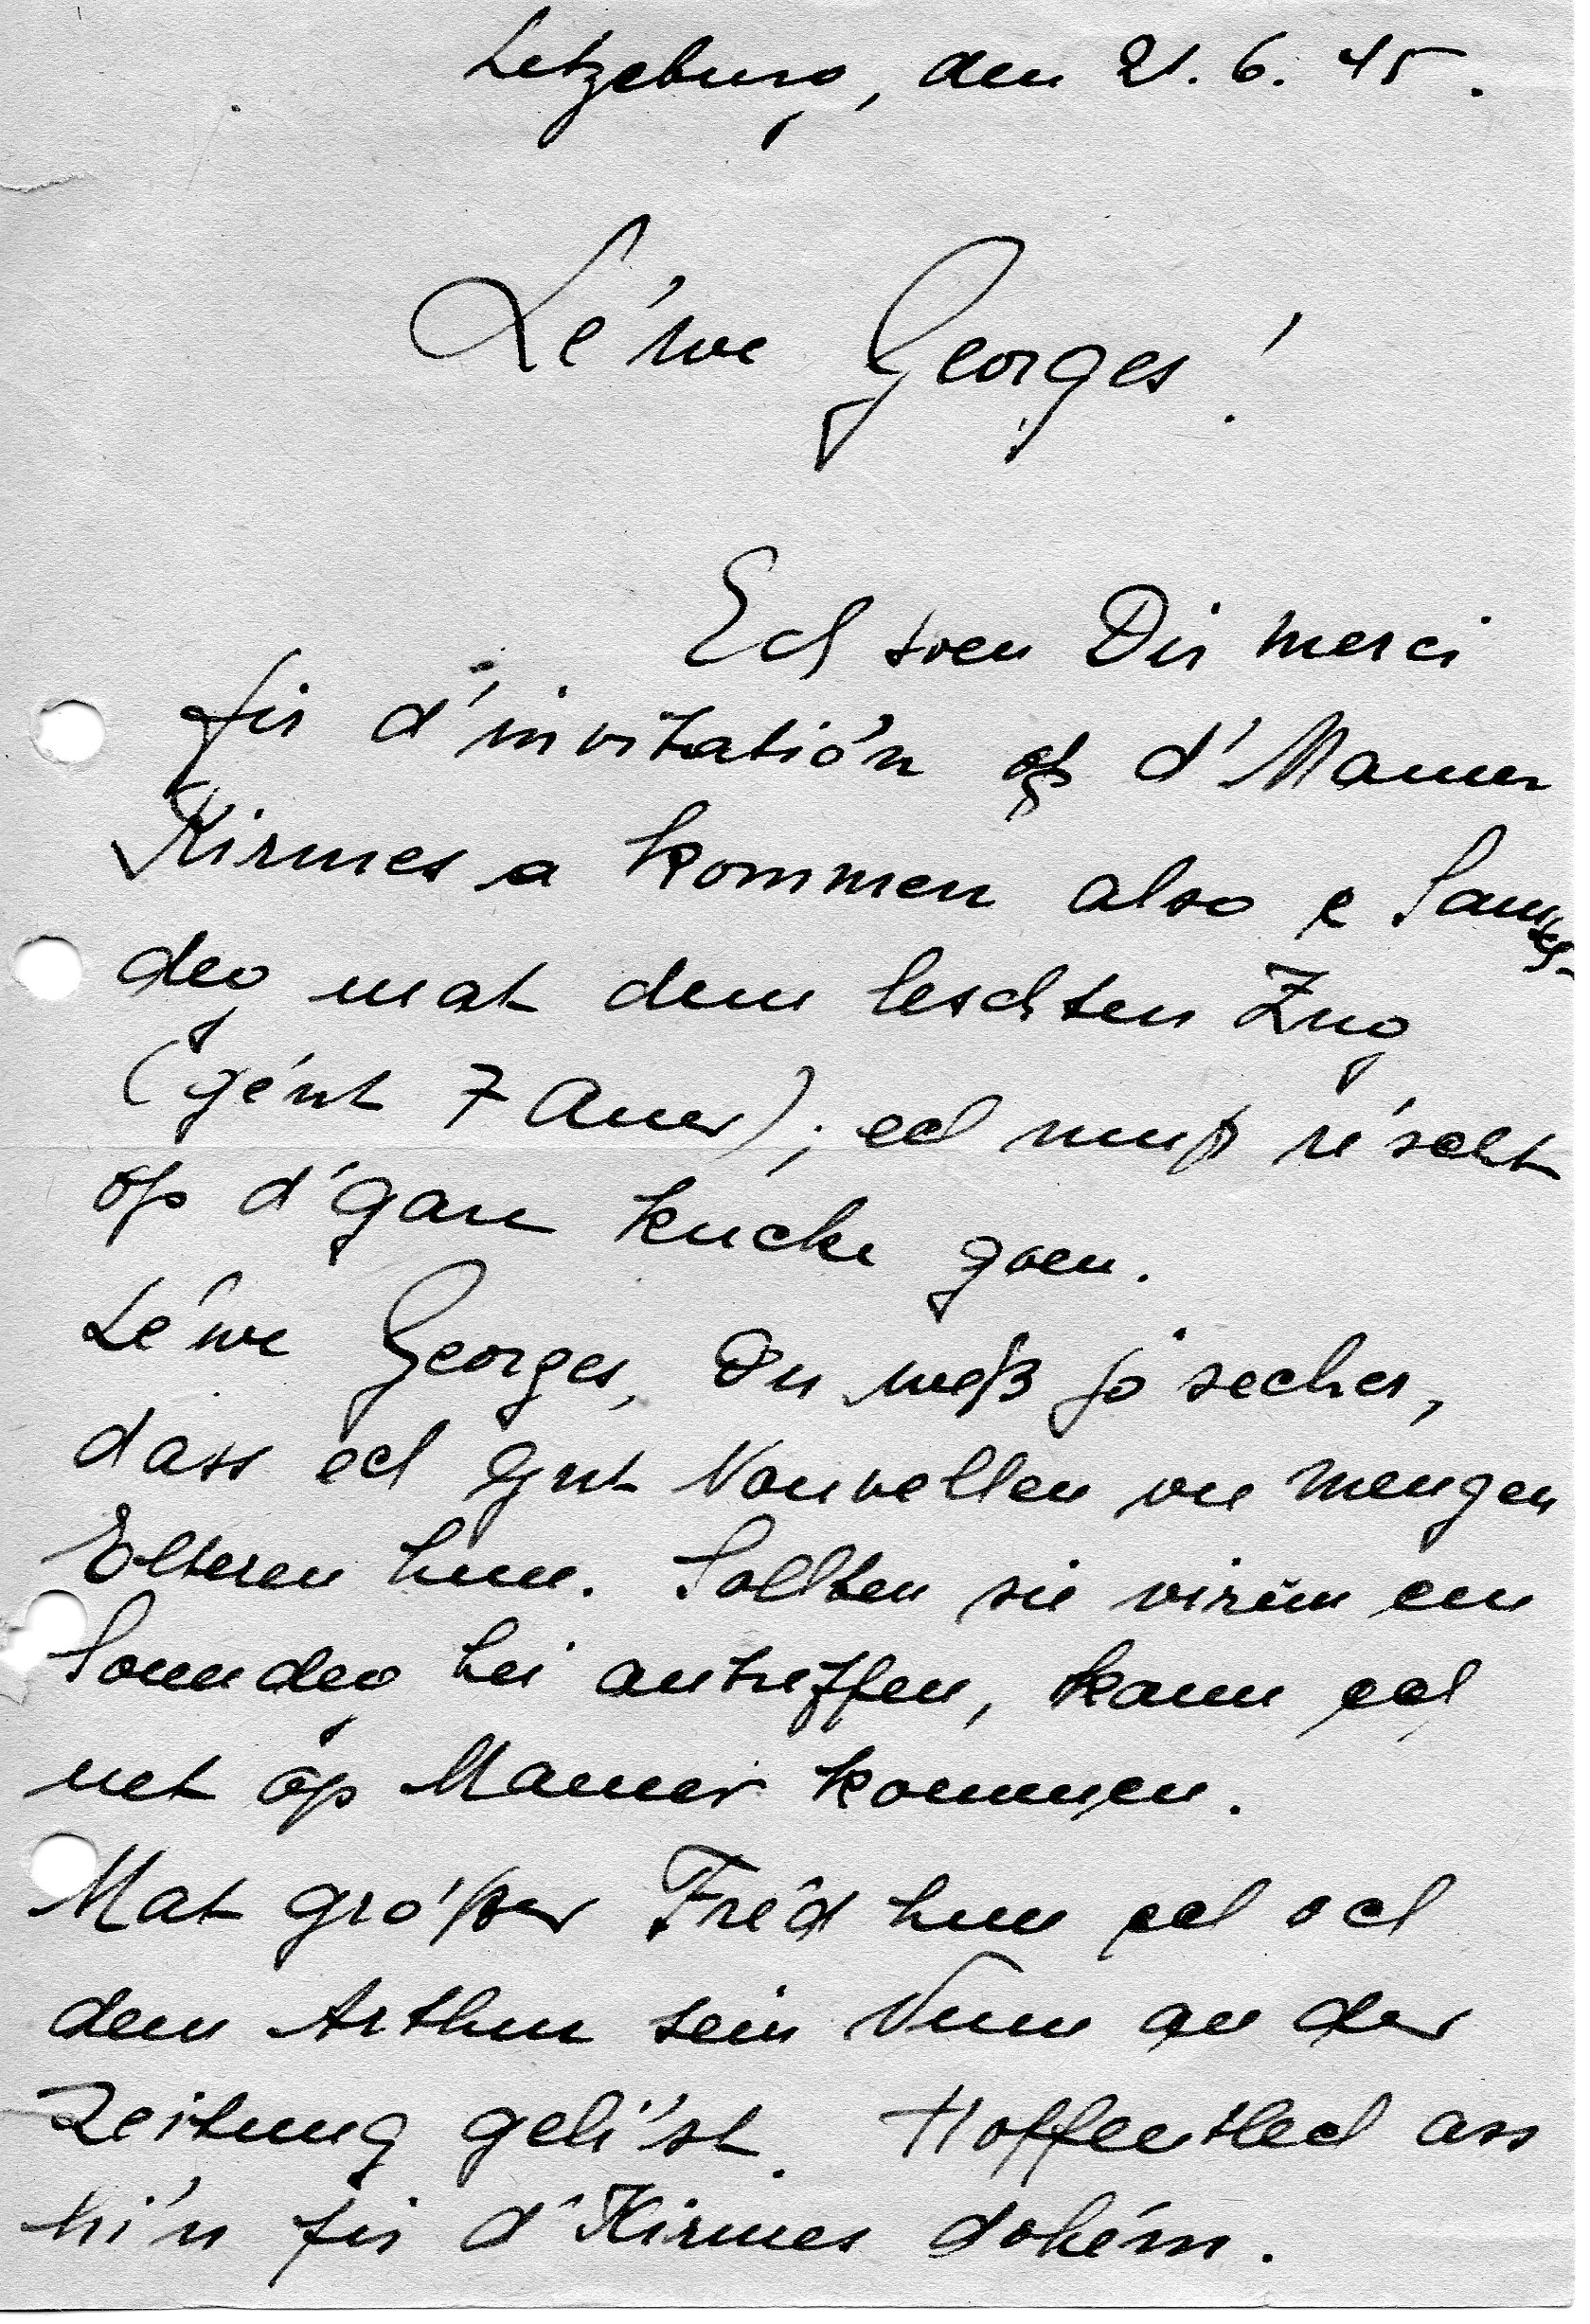 Letzeburg, den 21. 6. 45.
Le'we Georges!
Ech soen Dir merci
fir d'invitatio'n op d'Mamer
Kirmes a kommen also e Sams-
deg mat dem leschten Zug
(ge'nt 7 Auer); ech muß ré'scht
op d'gare kucke goen.
Le'we Georges, Du weß jo secher,
dass ech gut Nouvellen vu mengen
Elteren hun. Sollten sie virun en
Sonndeg hei antreffen, kann ech
net op Mamer kommen.
Mat gro'ßer Fréd hun ech och
dem Arthur sein Numm an der
Zeitung geli'st. Hoffentlech ass
hi'n fir d'Kirmes dohém.